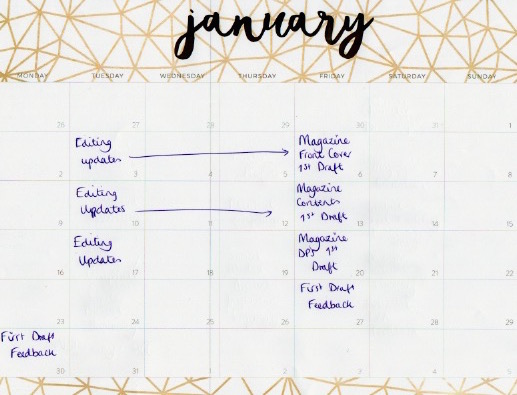 january
MONDAY TUESDAY WEDNESDAY THURSDAY FRIDAY SATURDAY SUNDAY
26 27 28 29 30 31 1
Editing
updates
Magazine
Front Cover
1st Draft
2 3 4 5 6 7 8
Editing
Updates
Magazine
Contents
1st Draft
9 10 11 12 13 14 15
Editing
Updates
Magazine
DPS 1st
Draft
16 17 18 19 20 21 22
First Draft
Feedback
23 24 25 26 27 28 29
First Draft
Feedback
30 31 1 2 3 4 5